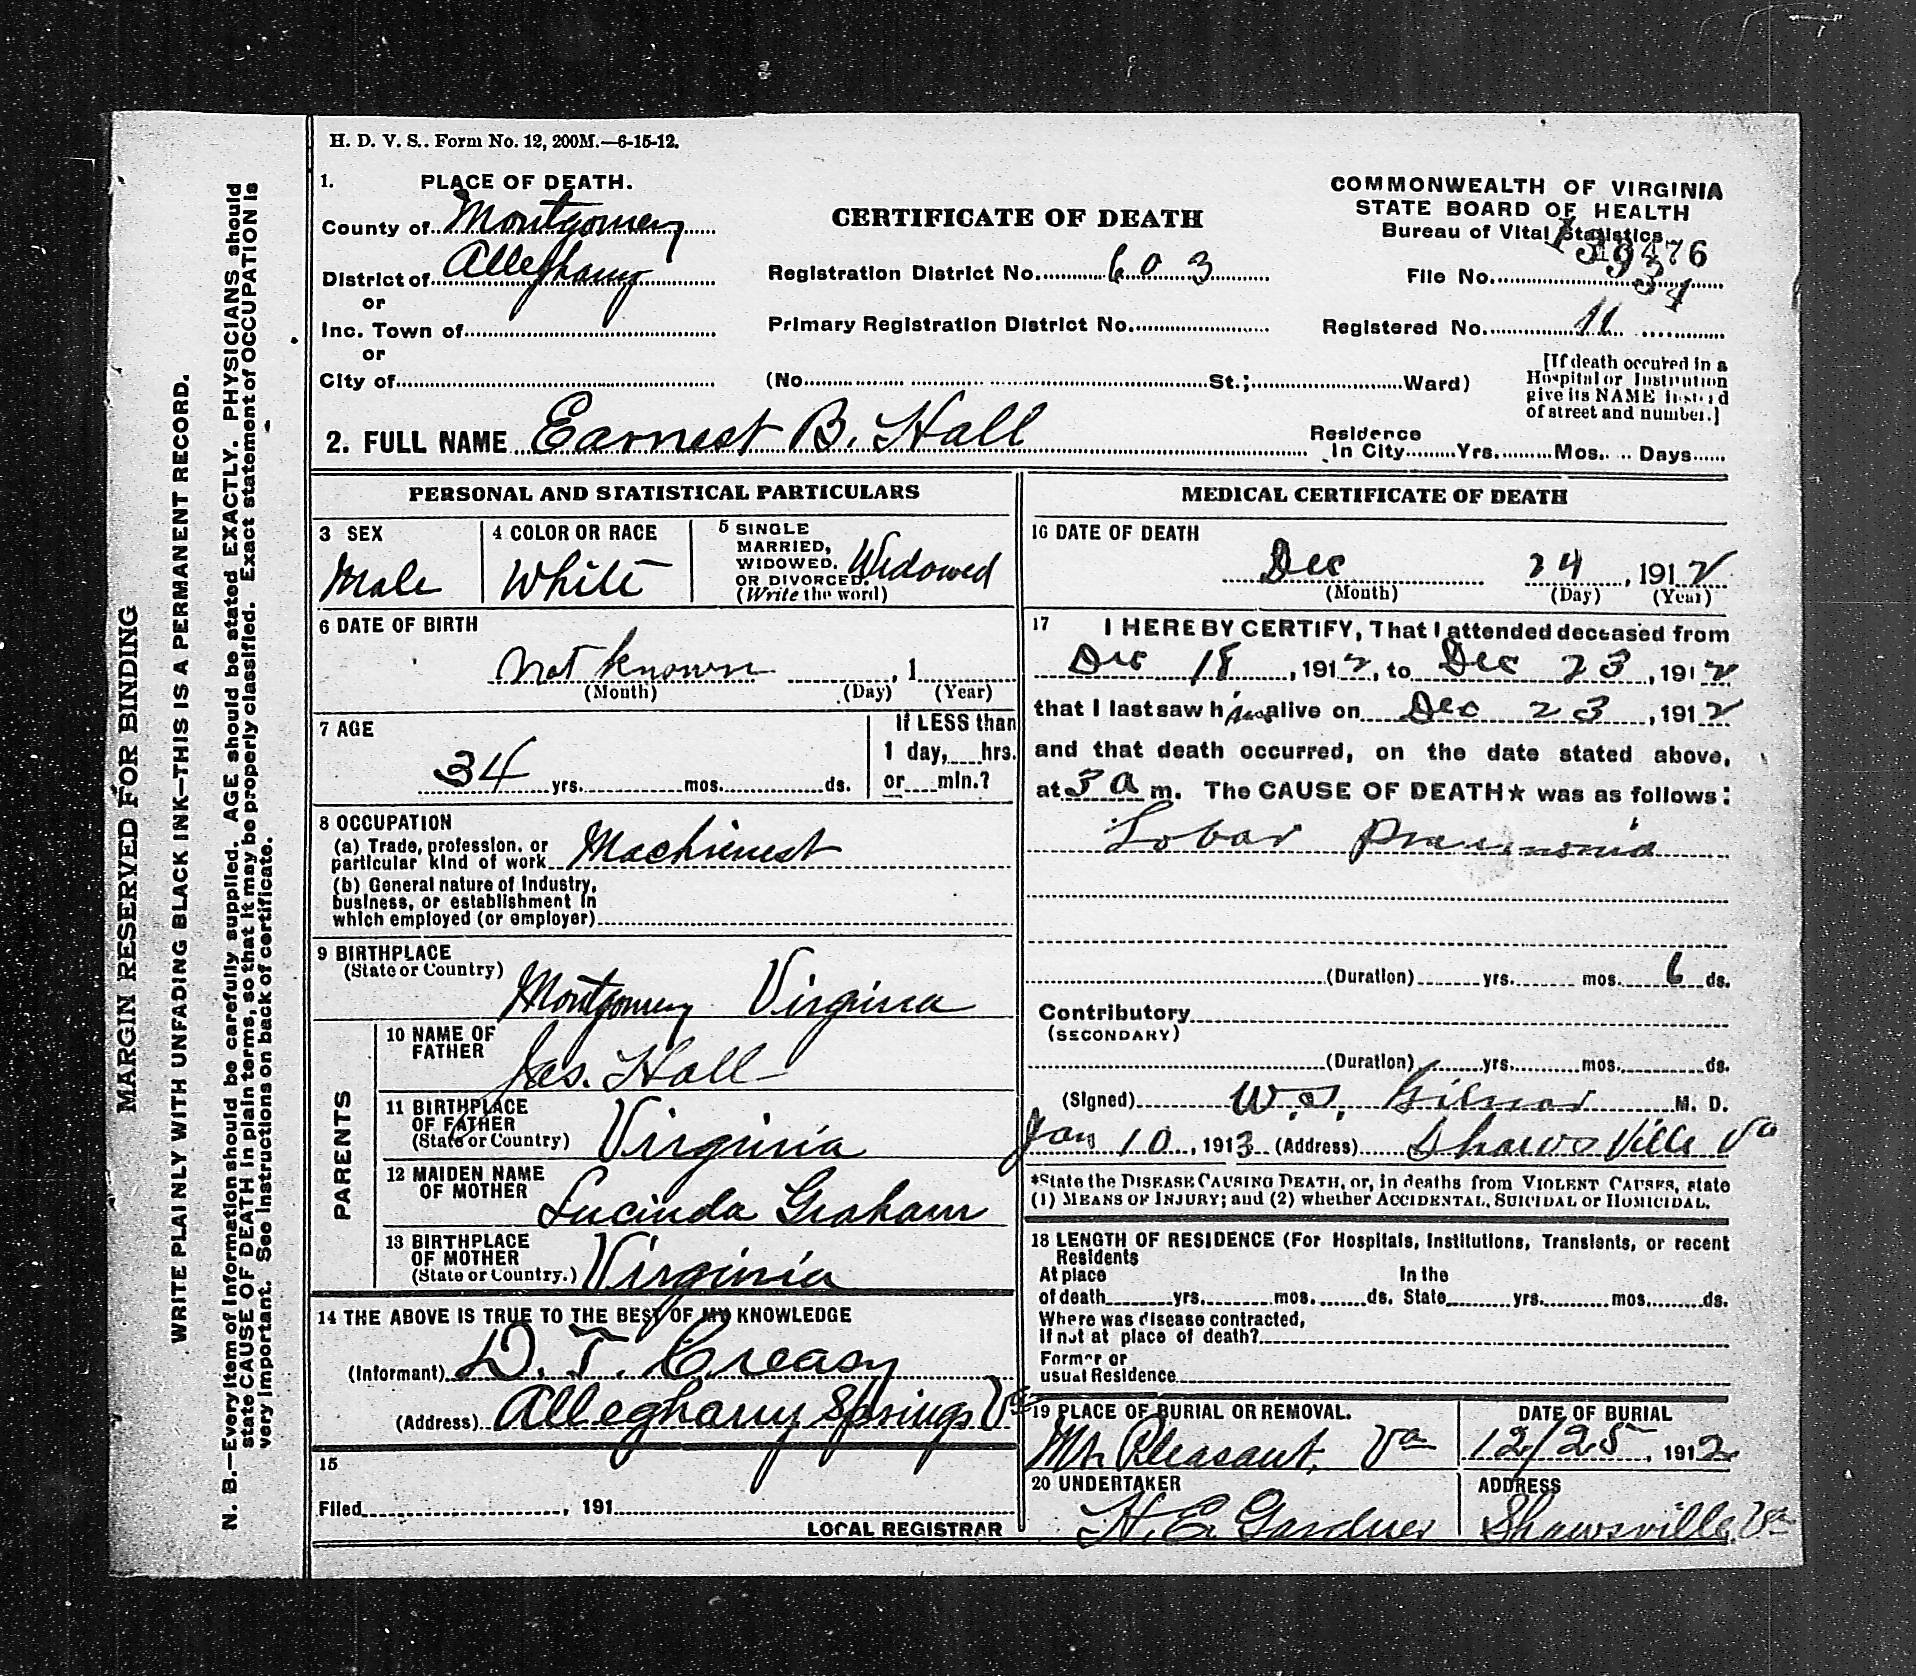 H. D. V. S.. Form No. 12, 200M.—6-15-12.
1. PLACE OF DEATH.
County of Montgomery
District of Alleghany
or
Inc. Town of
or
City of
CERTIFICATE OF DEATH
Registration District No. 603
Primary Registration District No.
(No. St.; Ward)
COMMONWEALTH OF VIRGINIA
STATE BOARD OF HEALTH
Bureau of Vital Statistics
File No.
Registered No. 11
[If death occured in a
Hospital or Institution
give its NAME instead
of street and number.]
2. FULL NAME Earnest B. Hall
Residence
In City Yrs. Mos. Days
PERSONAL AND STATISTICAL PARTICULARS
3 SEX
Male
4 COLOR OR RACE
White
5 SINGLE
MARRIED,
WIDOWED.
OR DIVORCED.
(Write the word)
Widowed
6 DATE OF BIRTH
not known , 1
(Month) (Day) (Year)
7 AGE
34 yrs. mos. ds.
If LESS than
1 day, hrs.
or min.?
8 OCCUPATION
(a) Trade, profession, or
particular kind of work Machienest
(b) General nature of Industry,
business, or establishment in
which employed (or employer)
9 BIRTHPLACE
(State or Country)
Montgomery Virginia
PARENTS
10 NAME OF
FATHER
Jas. Hall
11 BIRTHPLACE
OF FATHER
(State or Country)
Virginia
12 MAIDEN NAME
OF MOTHER
Lucinda Graham
13 BIRTHPLACE
OF MOTHER
(State or Country.)
Virginia
14 THE ABOVE IS TRUE TO THE BEST OF MY KNOWLEDGE
(Informant) D. T. Creasy
(Address) Alleghany Springs Va
15
Filed , 191
LOCAL REGISTRAR
MEDICAL CERTIFICATE OF DEATH
16 DATE OF DEATH
Dec 24 , 1912
(Month) (Day) (Year)
17 I HEREBY CERTIFY, That I attended deceased from
Dec 18 , 1912, to Dec 23 , 1912
that I last saw him alive on Dec 23 , 1912
and that death occurred, on the date stated above,
at 3 a m. The CAUSE OF DEATH★ was as follows:
Lobar Pneumonia
(Duration) yrs. mos. 6 ds.
Contributory
(SECONDARY)
(Duration) yrs. mos. ds.
(Signed) W. S. Gilmer M. D.
Jan 10, 1913 (Address) Shawsville Va
*State the DISEASE CAUSING DEATH, or, in deaths from VIOLENT CAUSES, state
(1) MEANS OF INJURY; and (2) whether ACCIDENTAL, SUICIDAL or HOMICIDAL.
18 LENGTH OF RESIDENCE (For Hospitals, Institutions, Transients, or recent
Residents
At place In the
of death yrs. mos. ds. State yrs. mos. ds.
Where was disease contracted,
If not at place of death?
Former or
usual Residence
19 PLACE OF BURIAL OR REMOVAL.
Mt. Pleasant, Va
DATE OF BURIAL
12/25, 1912
20 UNDERTAKER
H. E. Gardner
ADDRESS
Shawsville, Va
MARGIN RESERVED FOR BINDING
WRITE PLAINLY WITH UNFADING BLACK INK—THIS IS A PERMANENT RECORD.
N. B.—Every item of information should be carefully supplied. AGE should be stated EXACTLY. PHYSICIANS should
state CAUSE OF DEATH in plain terms, so that it may be properly classified. Exact statement of OCCUPATION is
very important. See instructions on back of certificate.